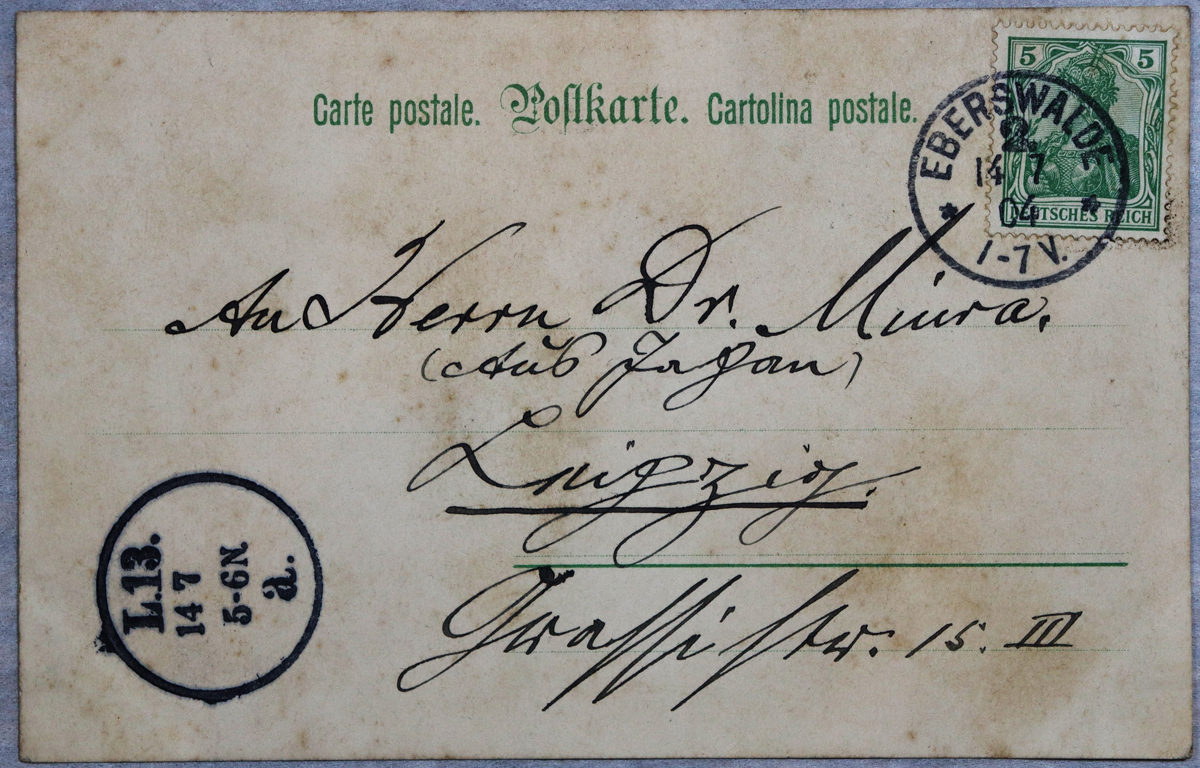 Carte postale. Postkarte. Cartolina postale.
5 5
DEUTSCHES REICH
EBERSWALDE
2.
14 7
04
7-7 V.
An Herrn Dr. Miura.
(Aus Japan)
Leipzig.
Grassistr. 15. III
L.13.
14 7
5-6N
a.